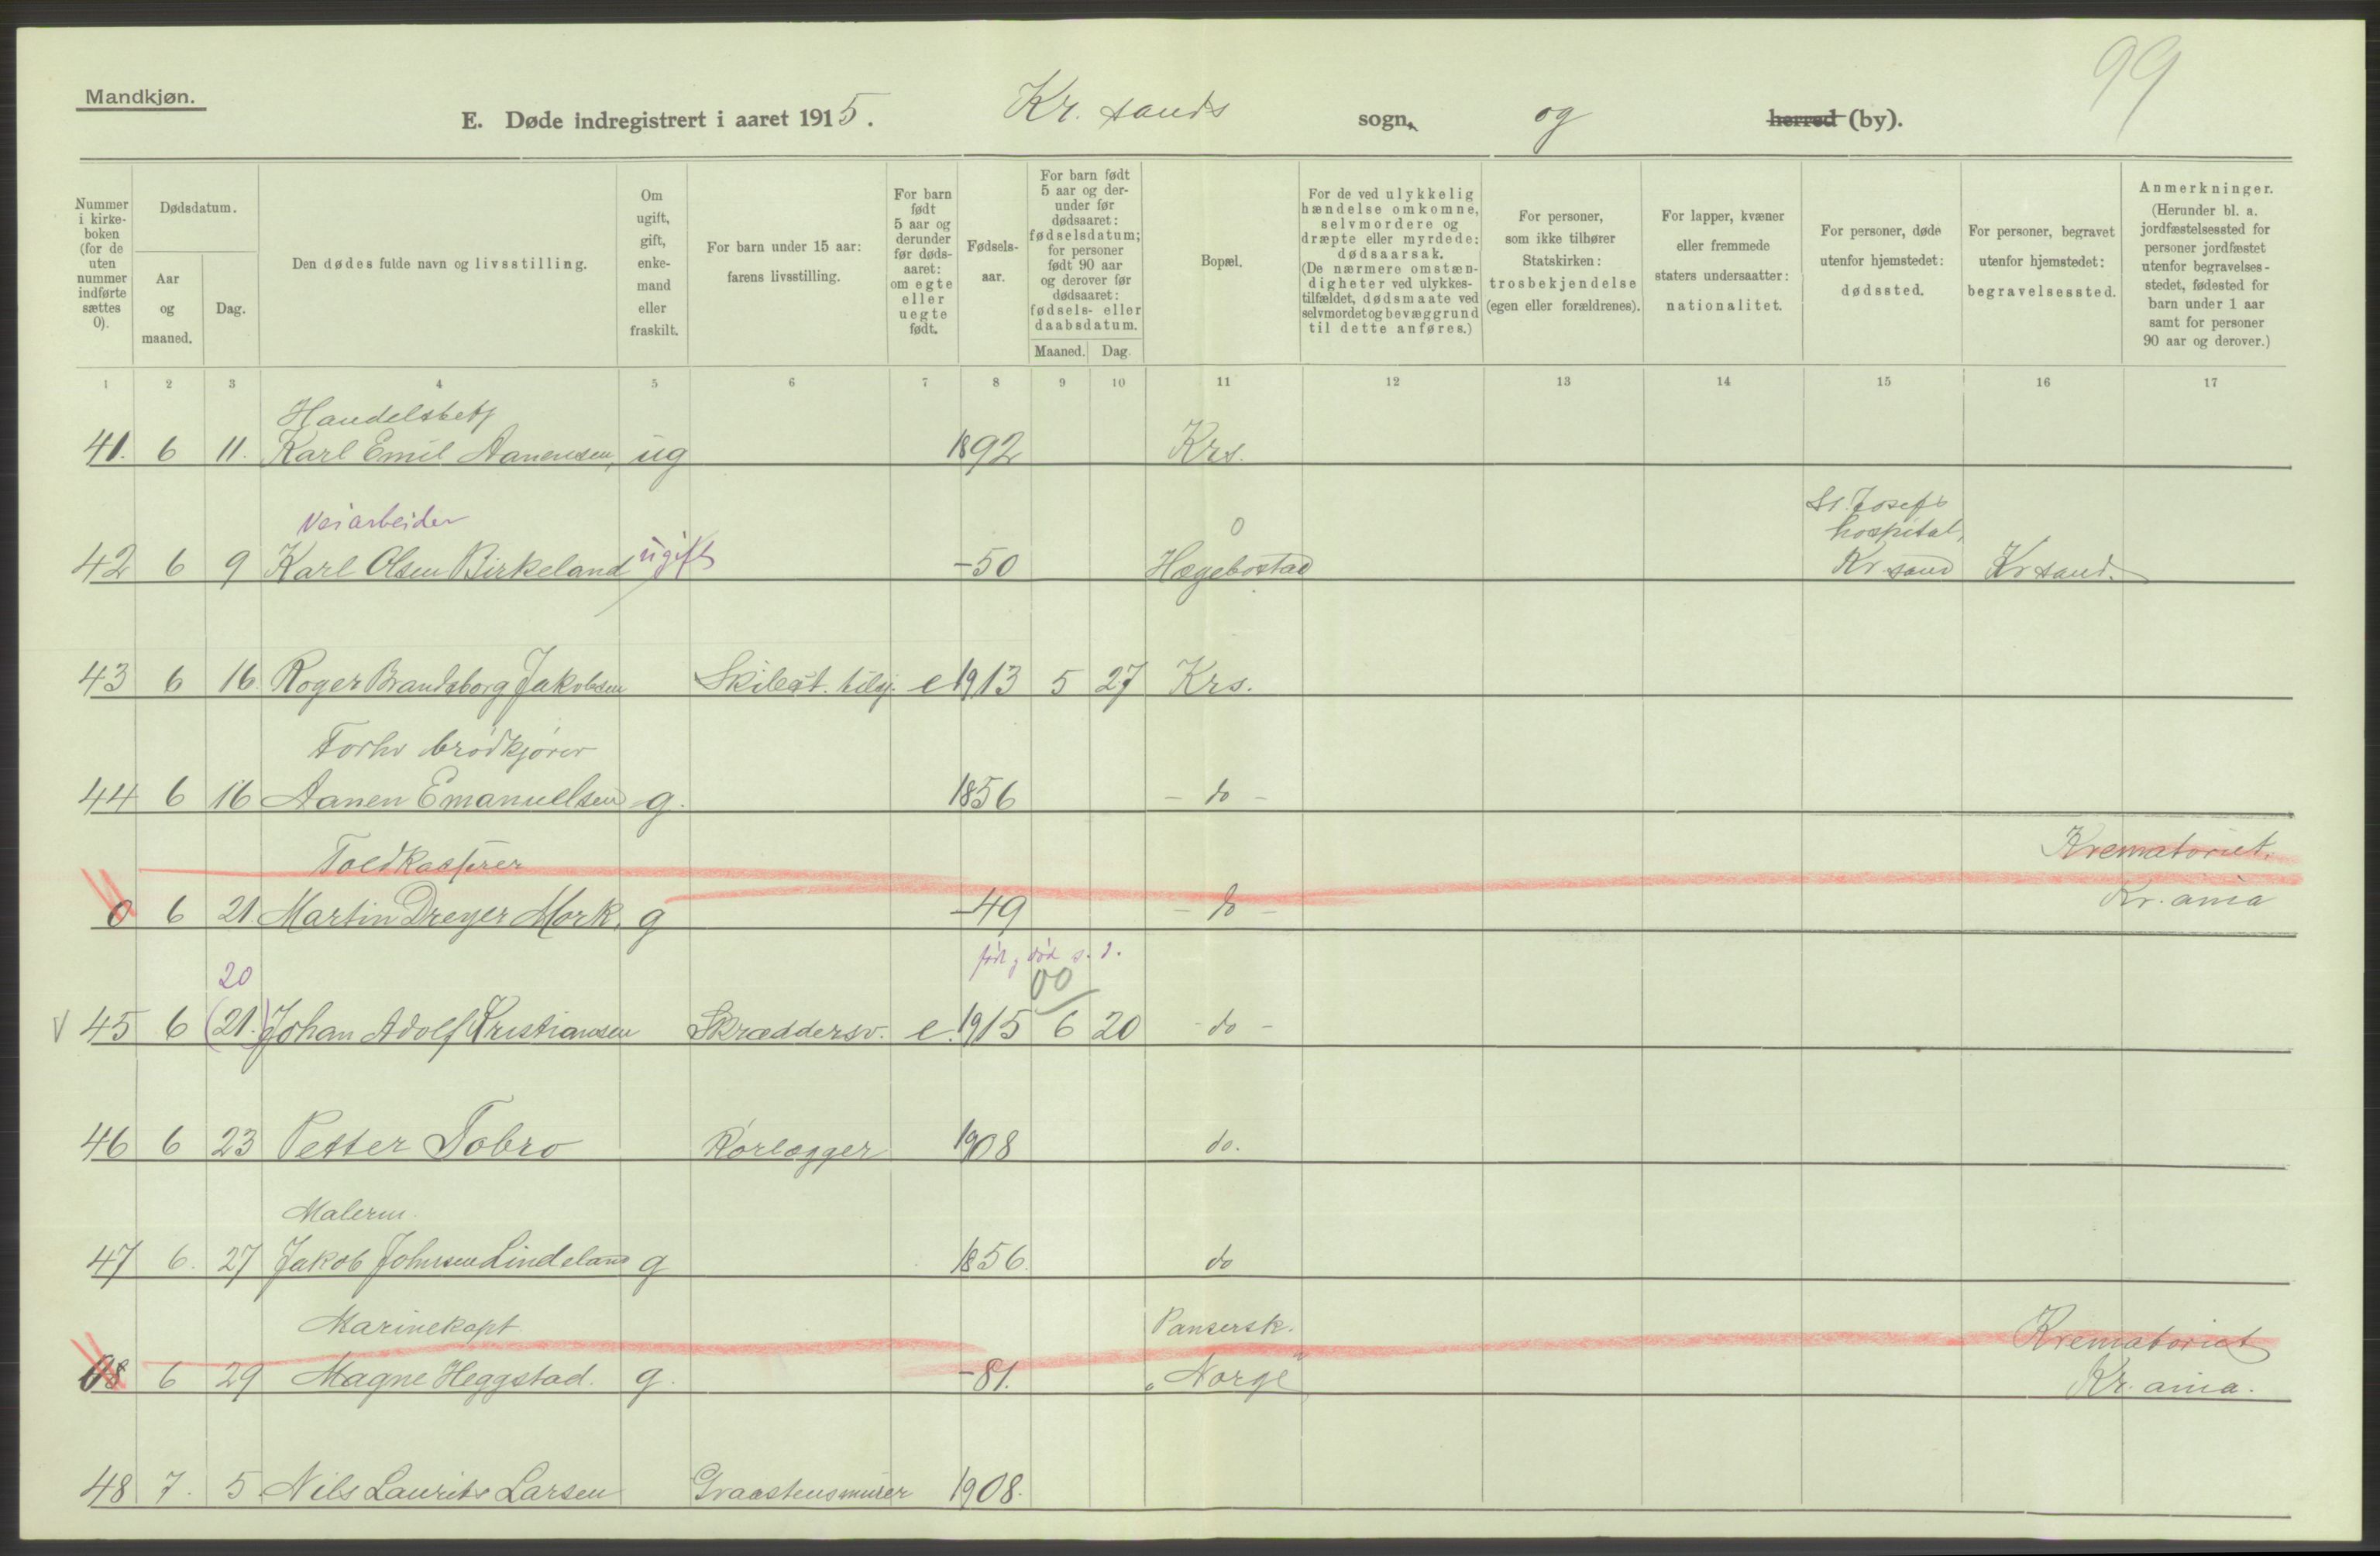 99
Mandkjøn.
E. Døde indregistrert i aaret 1915. Kr. sands sogn, og herred (by).
Nummer i kirke-boken (for de uten nummer indførte sættes 0).
Dødsdatum.
Aar og maaned.
Dag.
Den dødes fulde navn og livsstilling.
Om ugift, gift, enke-mand eller fraskilt.
For barn under 15 aar: farens livsstilling.
For barn født 5 aar og derunder før døds-aaret: om egte eller uegte født.
Fødsels-aar.
For barn født 5 aar og der-under før dødsaaret: fødselsdatum; for personer født 90 aar og derover før dødsaaret: fødsels- eller daabsdatum.
Maaned.
Dag.
Bopæl.
For de ved ulykkelig hændelse omkomne, selvmordere og dræpte eller myrdede: dødsaarsak. (De nærmere omstæn-digheter ved ulykkes-tilfældet, dødsmaate ved selvmordet og bevæggrund til dette anføres.)
For personer, som ikke tilhører Statskirken: trosbekjendelse (egen eller forældrenes).
For lapper, kvæner eller fremmede staters undersaatter: nationalitet.
For personer, døde utenfor hjemstedet: dødssted.
For personer, begravet utenfor hjemstedet: begravelsessted.
Anmerkninger. (Herunder bl. a. jordfæstelsessted for personer jordfæstet utenfor begravelses-stedet, fødested for barn under 1 aar samt for personer 90 aar og derover.)
1 2 3 4 5 6 7 8 9 10 11 12 13 14 15 16 17
Handelsbetj
41. 6 11. Karl Emil Aanensen, ug 1892 Krs.
St. Josefs
Veiarbeider 0 hospital,
42 6 9 Karl Olsen Birkeland ugift -50 Hægebostad Kr.sand Krsand.
43 6 16. Roger Brandsborg Jakobsen Skibest. tilsj. e 1913 5 27 Krs.
Forhv brödkjörer
44 6 16 Aanen Emanuelsen g. 1856 - do -
Toldkasserer Krematoriet.
0 6 21 Martin Dreyer Mork. g -49 - do - Kr.ania
født, død s. d.
20 00
V 45 6 (21.) Johan Adolf Kristiansen Skræddersv. e. 1915 6 20 - do -
46 6 23 Petter Tobro Rörlægger 1908 do.
Malerm.
47 6. 27 Jakob Johnsen Lindeland g 1856. do
Marinekapt. Pansersk. Krematoriet
08 6 29 Magne Heggstad. g. -81. "Norge" Kr.ania.
48 7. 5. Nils Laurits Larsen Graastensmurer 1908.